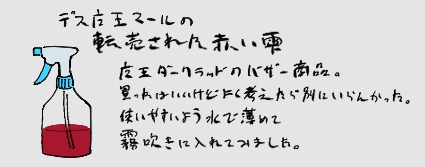 デス店王マールの
転売された赤い雫
店王ダークラッドのバザー商品。
買ったはいいけどよく考えたら別にいらんかった。
使いやすいよう水で薄めて
霧吹きに入れてみました。